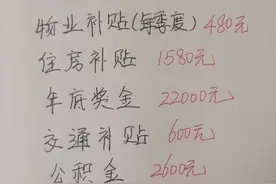 物业补贴(每季度) 480元
住房补贴 1580元
年底奖金 22000元
交通补贴 600元
公积金 2600元